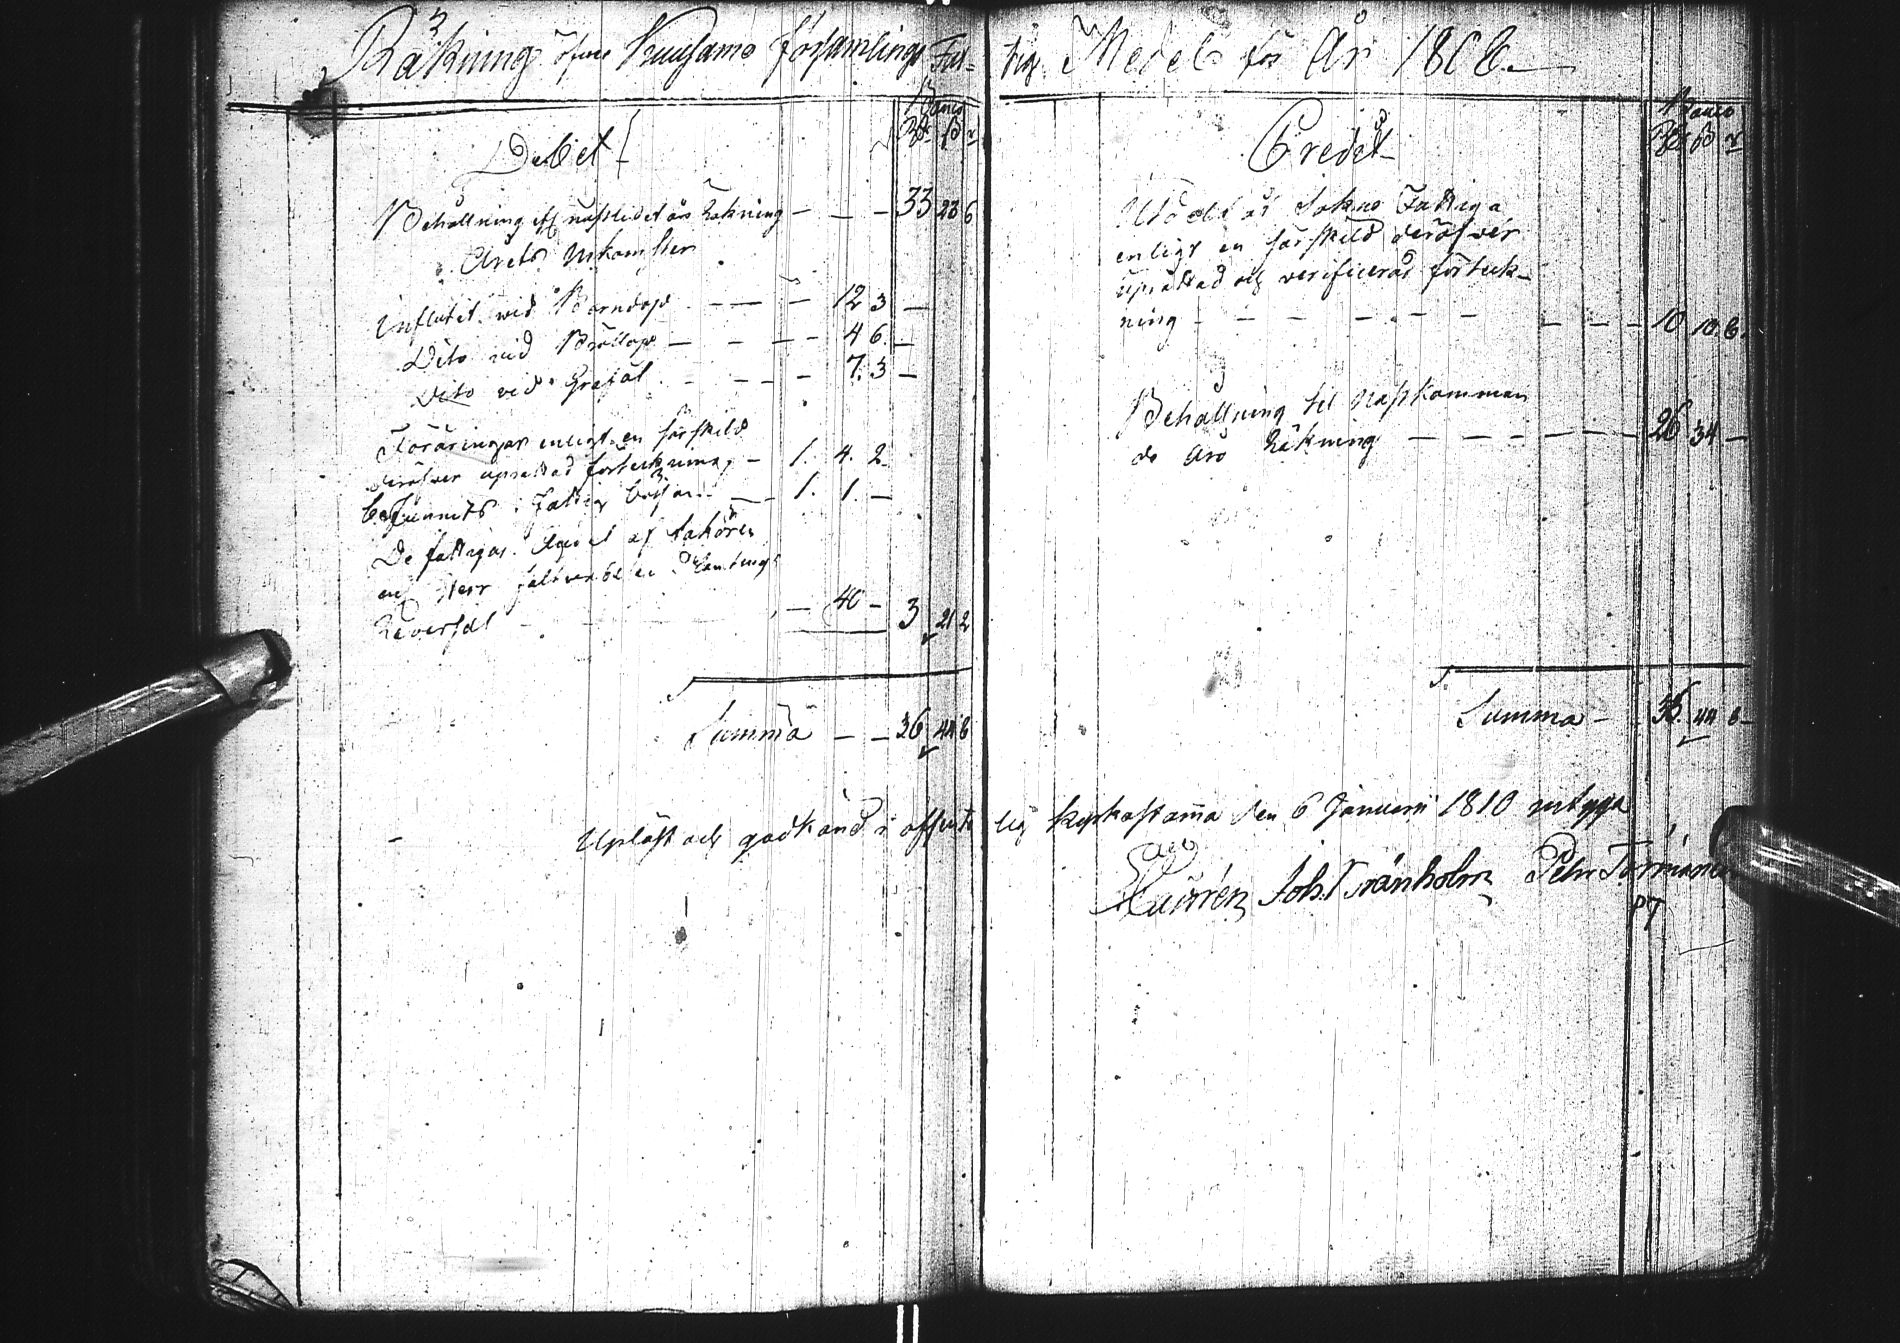 Räkning öfver Kuusamo församlings Fattig Medel för År 1808.
Banco
Rd ß r
Debet
Behållning af nästledet års Räkning — — — 33 23 6
Årets Inkomster
Influtit wid Barndop — — — 12 3 —
Dito vid Bröllop — — — — 4 6. —
Dito vid Grafäl — — — 7. 3 —
Föräringar enligt en särskild
deröfver uprättad förteckning — 1. 4. 2.
befunnits i Fattig bössan — — 1. 1. —
De fattigas Andel af
Herr
Reversal — 40 — 3 21 2
Summa — — 36 44 8
Banco
Rd ß r
Credit
Utdelt åt Sokne Fattiga
enligt en särskild deröfver
uprättad och verificerad förteck-
ning — — — — — — — — 10 10. 8.
Behållning til nästkomman
de års Räkning — — — — — 26 34 —
Summa — 36. 44 8 —
Upläst och godkänd i offentelig kyrkostämma den 6 Januarii 1810 intyga
Joh. Tranholm Pehr Tormänen
PT